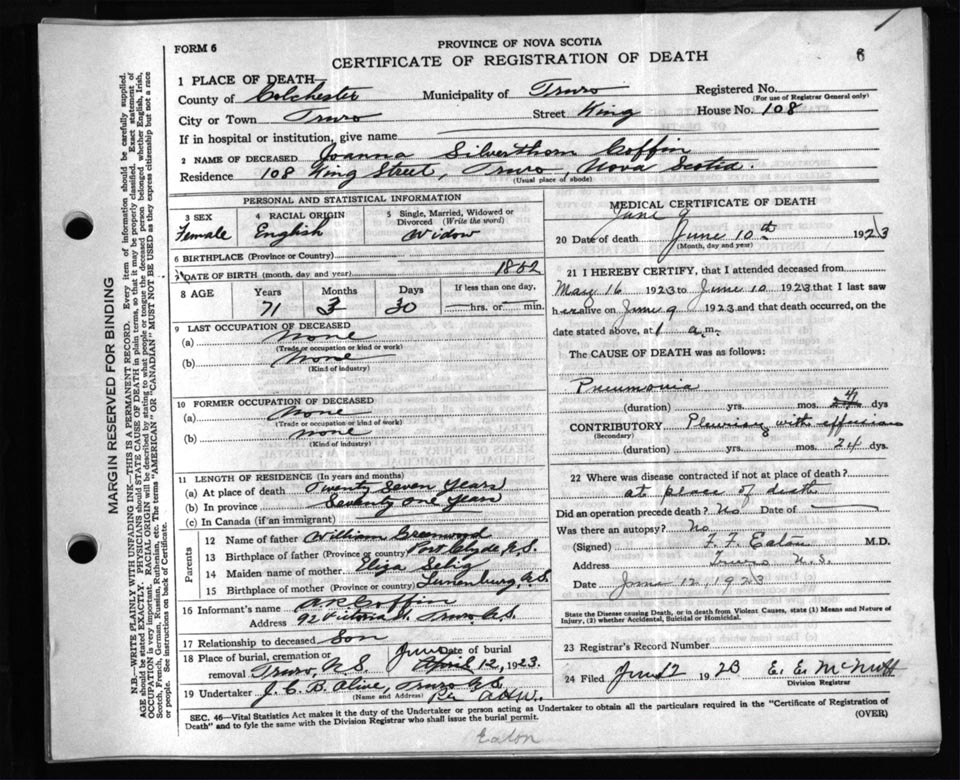 FORM 6
PROVINCE OF NOVA SCOTIA
CERTIFICATE OF REGISTRATION OF DEATH
6
1 PLACE OF DEATH
County of Colchester Municipality of Truro Registered No.
(For use of Registrar General only)
City or Town Truro Street King House No. 108
If in hospital or institution, give name
2 NAME OF DECEASED Joanna Silverthorn Coffin
Residence 108 King Street, Truro, Nova Scotia.
(Usual place of abode)
PERSONAL AND STATISTICAL INFORMATION
3 SEX 4 RACIAL ORIGIN 5 Single, Married, Widowed or Divorced (Write the word)
Female English Widow
6 BIRTHPLACE (Province or Country)
7 DATE OF BIRTH (month, day, and year) 1852
8 AGE Years Months Days If less than one day,
71 3 30 hrs. or min.
9 LAST OCCUPATION OF DECEASED
(a) None
(Trade or occupation or kind of work)
(b) None
(Kind of industry)
10 FORMER OCCUPATION OF DECEASED
(a) None
(Trade or occupation or kind of work)
(b) none
(Kind of industry)
11 LENGTH OF RESIDENCE (In years and months)
(a) At place of death Twenty Seven Years
(b) In province Seventy one Years
(c) In Canada (if an immigrant)
Parents
12 Name of father William Greenwood
13 Birthplace of father (Province or country) Port Clyde N.S.
14 Maiden name of mother Eliza Selig
15 Birthplace of mother (Province or country) Lunenburg N.S.
16 Informant's name Coffin
Address 92 Victoria St. Truro N.S.
17 Relationship to deceased Son
18 Place of burial, cremation or removal Truro, N.S. Date of burial June April 12, 1923.
19 Undertaker J. C. B. Olive, Truro N.S.
(Name and Address) Per
MEDICAL CERTIFICATE OF DEATH
June 9
20 Date of death June 10th 1923
(Month, day and year)
21 I HEREBY CERTIFY, that I attended deceased from
May 16 1923 to June 10 1923 that I last saw
her alive on June 9 1923 and that death occurred, on the
date stated above, at 1 a.m.
The CAUSE OF DEATH was as follows:
Pneumonia
(duration) yrs. mos. 24 dys
CONTRIBUTORY Pleurisy with effusion
(Secondary)
(duration) yrs. mos. 24 dys.
22 Where was disease contracted if not at place of death?
at place of death
Did an operation precede death? No Date of
Was there an autopsy? No
(Signed) F. F. Eaton M.D.
Address Truro N.S.
Date June 12, 1923
State the Disease causing Death, or in death from Violent Causes, state (1) Means and Nature of
Injury, (2) whether Accidental, Suicidal or Homicidal.
23 Registrar's Record Number
24 Filed June 12 1923 E. E. McNutt
Division Registrar
SEC. 46—Vital Statistics Act makes it the duty of the Undertaker or person acting as Undertaker to obtain all the particulars required in the "Certificate of Registration of
Death" and to fyle the same with the Division Registrar who shall issue the burial permit. (OVER)
Eaton
MARGIN RESERVED FOR BINDING
N.B.—WRITE PLAINLY WITH UNFADING INK—THIS IS A PERMANENT RECORD. Every item of information should be carefully supplied.
AGE should be stated EXACTLY. PHYSICIANS should STATE CAUSE OF DEATH in plain terms, so that it may be properly classified. Exact statement of
OCCUPATION is very important. RACIAL ORIGIN will be described by stating to what people or tongue the deceased person belonged whether English, Irish,
Scotch, French, German, Russian, Ruthenian, etc. The terms "AMERICAN" OR "CANADIAN" MUST NOT BE USED as they express citizenship but not a race
or people. See instructions on back of Certificate.